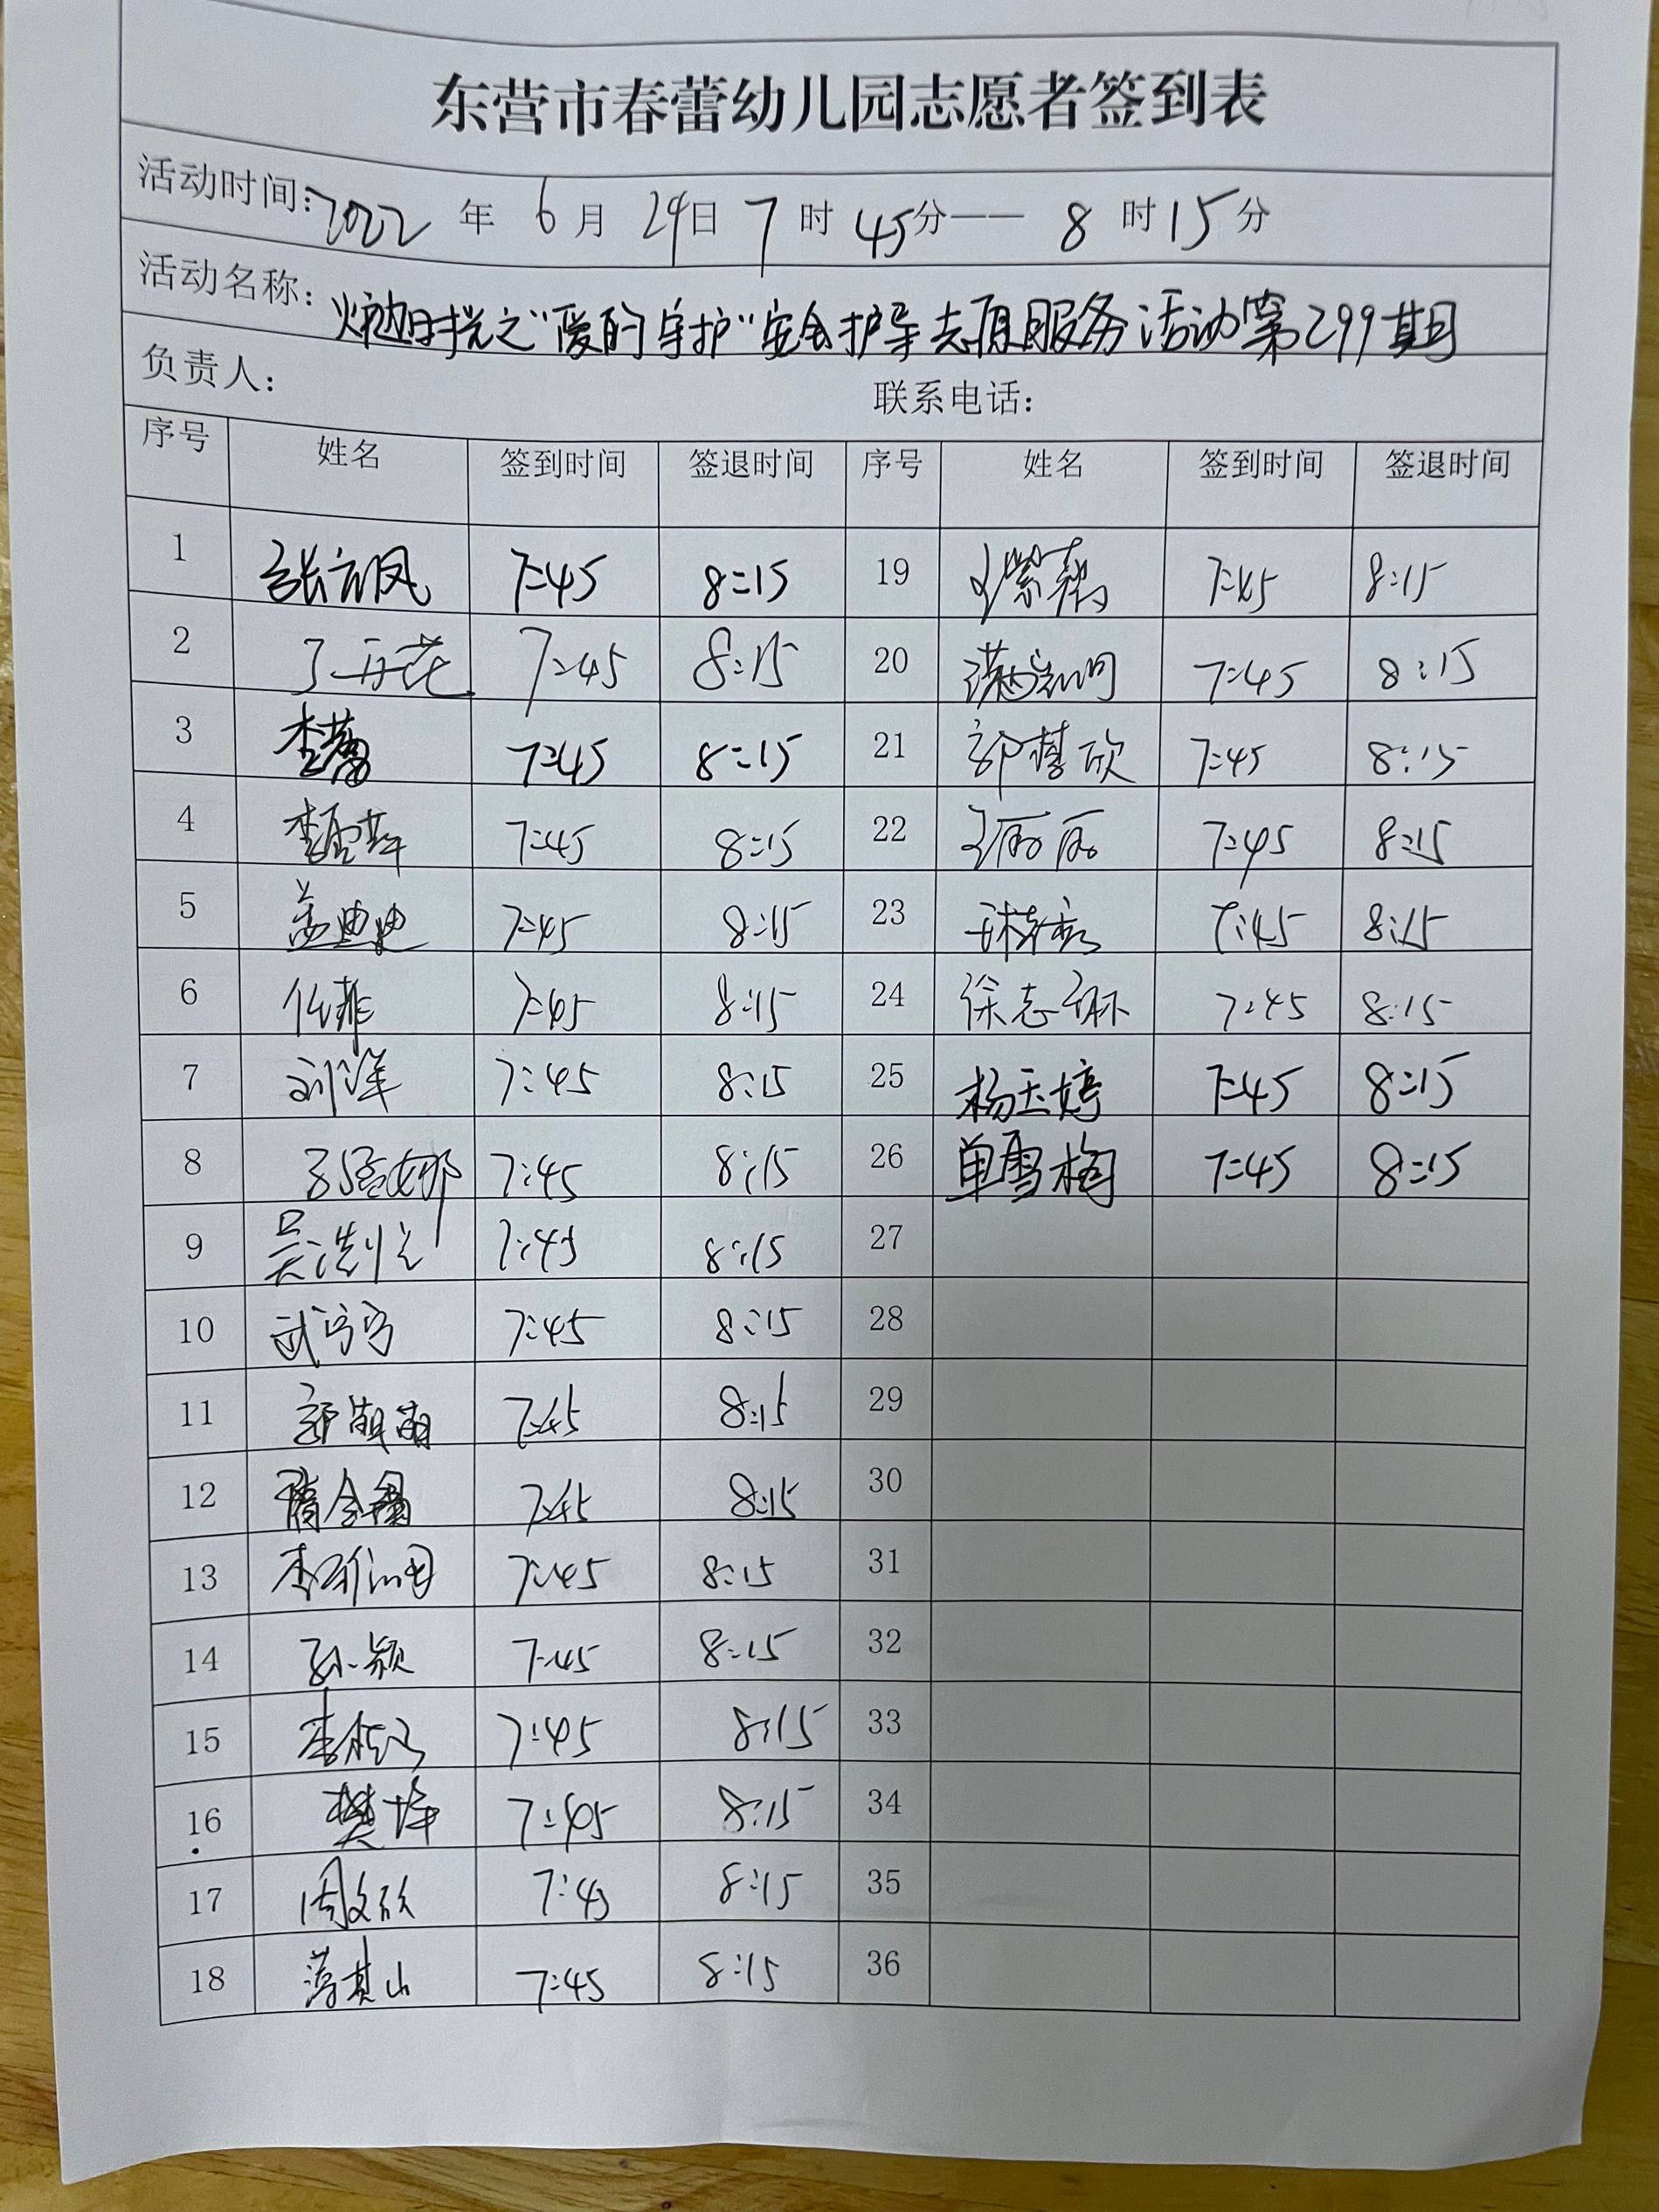 东营市春蕾幼儿园志愿者签到表
活动时间：2022年6月29日7时45分——8时15分
活动名称：炉边时光之“爱的守护”安全护导志愿服务活动第299期
负责人： 联系电话：
序号 姓名 签到时间 签退时间 序号 姓名 签到时间 签退时间
1 张立凤 7:45 8:15 19 7:45 8:15
2 丁丹花 7:45 8:15 20 7:45 8:15
3 李蕾 7:45 8:15 21 郭慧欣 7:45 8:15
4 李雪萍 7:45 8:15 22 王丽丽 7:45 8:15
5 盖迪迪 7:45 8:15 23 7:45 8:15
6 任菲 7:45 8:15 24 徐志琳 7:45 8:15
7 刘洋 7:45 8:15 25 杨玉婷 7:45 8:15
8 7:45 8:15 26 单雪梅 7:45 8:15
9 吴 7:45 8:15 27
10 武宁宁 7:45 8:15 28
11 郭萌萌 7:45 8:15 29
12 隋金 7:45 8:15 30
13 李 7:45 8:15 31
14 孙颖 7:45 8:15 32
15 李 7:45 8:15 33
16 樊 7:45 8:15 34
17 周文欣 7:45 8:15 35
18 薄其山 7:45 8:15 36